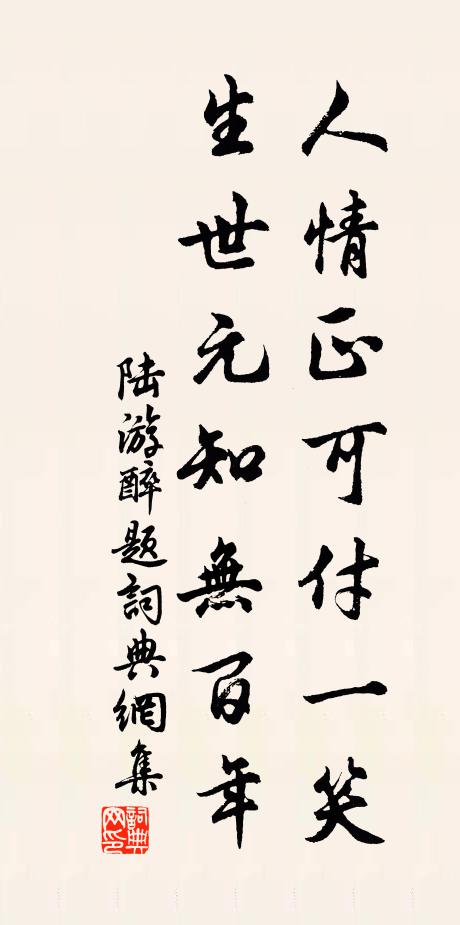 人情正可付一笑
生世元知無百年
陸游醉題詞典網集
詞典网印